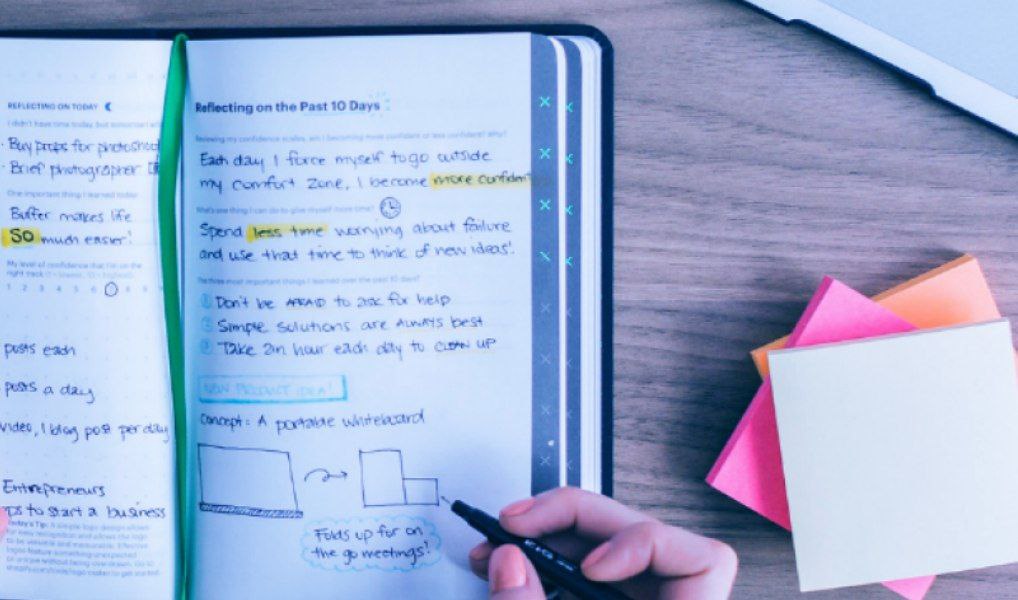 REFLECTING ON TODAY
I didn't have time today, but remember
Buy props for photoshoot
Brief photographer
One important thing I learned today
Buffer makes life
SO much easier!
My level of confidence that I'm on the
right track
1 2 3 4 5 6 8 9
posts each
posts a day
video, 1 blog post per day
Entrepreneurs
to start a business
Today's Tip: A simple logo design allows
for easy recognition and allows the logo
to be versatile and memorable. Effective
logos feature something unexpected
or unique without being over-drawn. Go to
Reflecting on the Past 10 Days
Reviewing my confidence scales, am I becoming more confident or less confident? Why?
Each day I force myself to go outside
my comfort zone, I become more confident
What's one thing I can do to give myself more time?
Spend less time worrying about failure
and use that time to think of new ideas!
The three most important things I learned over the past 10 days?
1 Don't be AFRAID to ask for help
2 Simple solutions are ALWAYS best
3 Take an hour each day to CLEAN UP
NEW PRODUCT IDEA!
Concept: A portable whiteboard
Folds up for on
the go meetings!